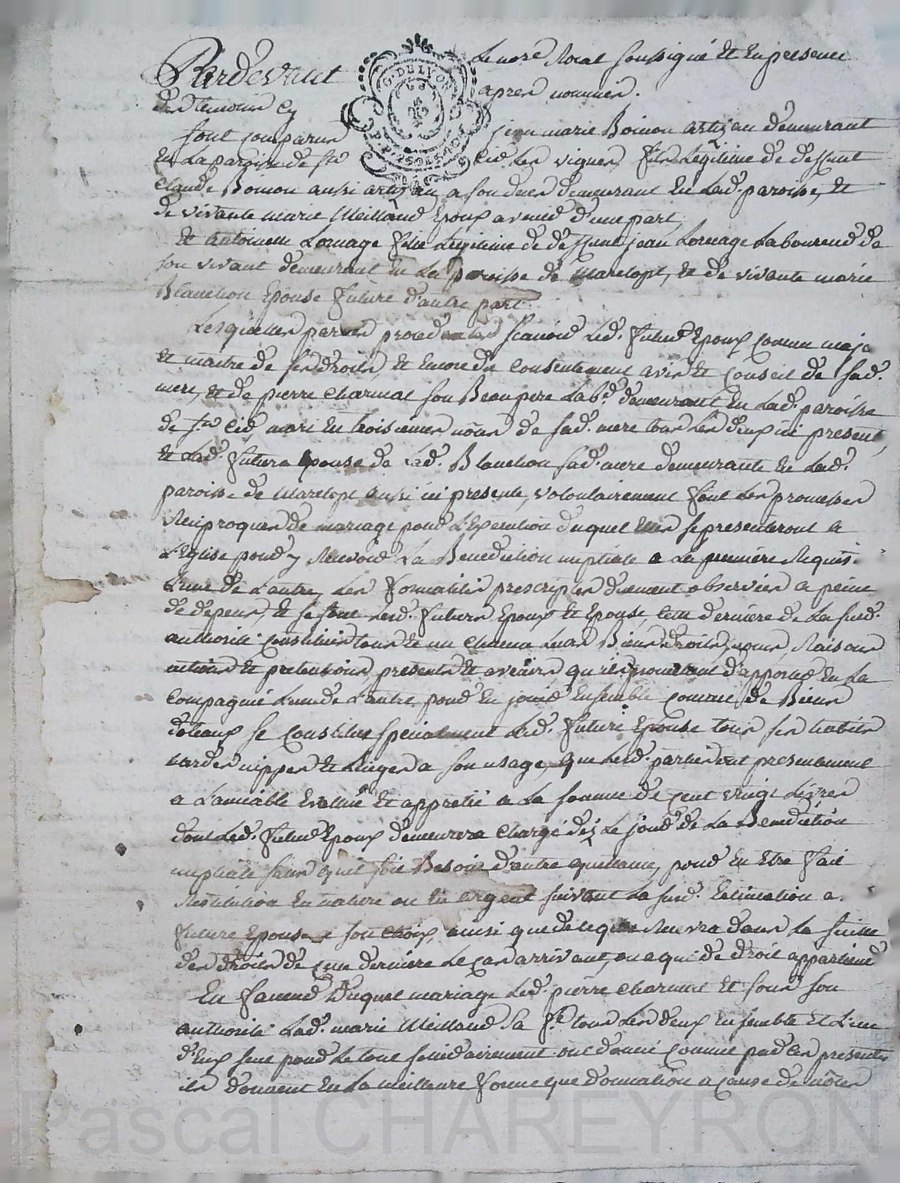 Pardevant Le nore Roial soussigné Et En presence
des temoins Cy apres nommés.
sont comparus jean marie Boinon artizan demeurant
En La paroisse de st Cir Les vignes, fils Legitime de deffunt
Claude Boinon aussi artizan, a son vivant demeurant En Lad. paroisse, Et
de vivante marie Meilland Epoux avenir d'une part
Et Antoinette Lornage fille Legitime de deffunt jean Lornage Laboureur de
son vivant demeurant En La paroisse de Marclopt, Et de vivante marie
Blanchon Epouse future d'autre part.
Lesquelles parties procedantes scavoir Led. futur Epoux Comme majr
Et maitre de ses droits Et Encore du Consentement avis Et Conseil de sad.
mere, Et de pierre Charmat son Beaupere Labr. demeurant En Lad. paroisse
de st Cir, mari En troisiemes nôces de sad. mere tous Les deux ici presents,
Et Lad. future Epouse de Lad. Blanchon sad. mere demeurante En Lad.
paroisse de Marclopt aussi ici presente, volontairement font Les promesses
Reciproques de mariage pour L'Execution duquel Elles se presenteront a
L'Eglise pour y Recevoir La Benediction nuptiale a La premiere Requis.
L'une de L'autre, Les formalités prescriptes duement observées a peine
de depens, Et se sont Lesd. futurs Epoux Et Epouse Cette derniere de La susd.
authorité Constitués tous Et un Chacun Leurs Biens droits, noms Raisons
actions Et pretentions presents Et avenirs qu'ils promettent d'apporter En La
Compagnie L'un de L'autre, pour En jouir Ensemble Comme de Biens
dotaux se Constitue specialement Lad. future Epouse tous ses habits
hardes nippes Et Linges a son usage, que Lesd. parties ont presentement
a L'amiable Evalué Et appretié a La somme de Cent vingt Livres
dont Led. futur Epoux demeurera Chargé dès Le jour de La Benediction
nuptiale sans qu'il soit Besoin d'autre quittance, pour En Etre fait
Restitution En nature ou En argent suivant La susd. Estimation a
future Epouse a son Choix, ainsi que de ce qu'il Recevra dans La suitte
des droits de Cette derniere Le Cas arrivant, ou a qui de droit appartiend
En faveur duquel mariage Led. pierre Charmat Et sous son
authorité Lad. marie Meilland sa fe. tous Les deux Ensemble Et L'un
d'Eux seul pour Le tout solidairement ont donné Comme par Ces presentes
ils donnent En La meilleure forme que donnation a Cause de nôces
G. DE LYON
Pascal CHAREYRON